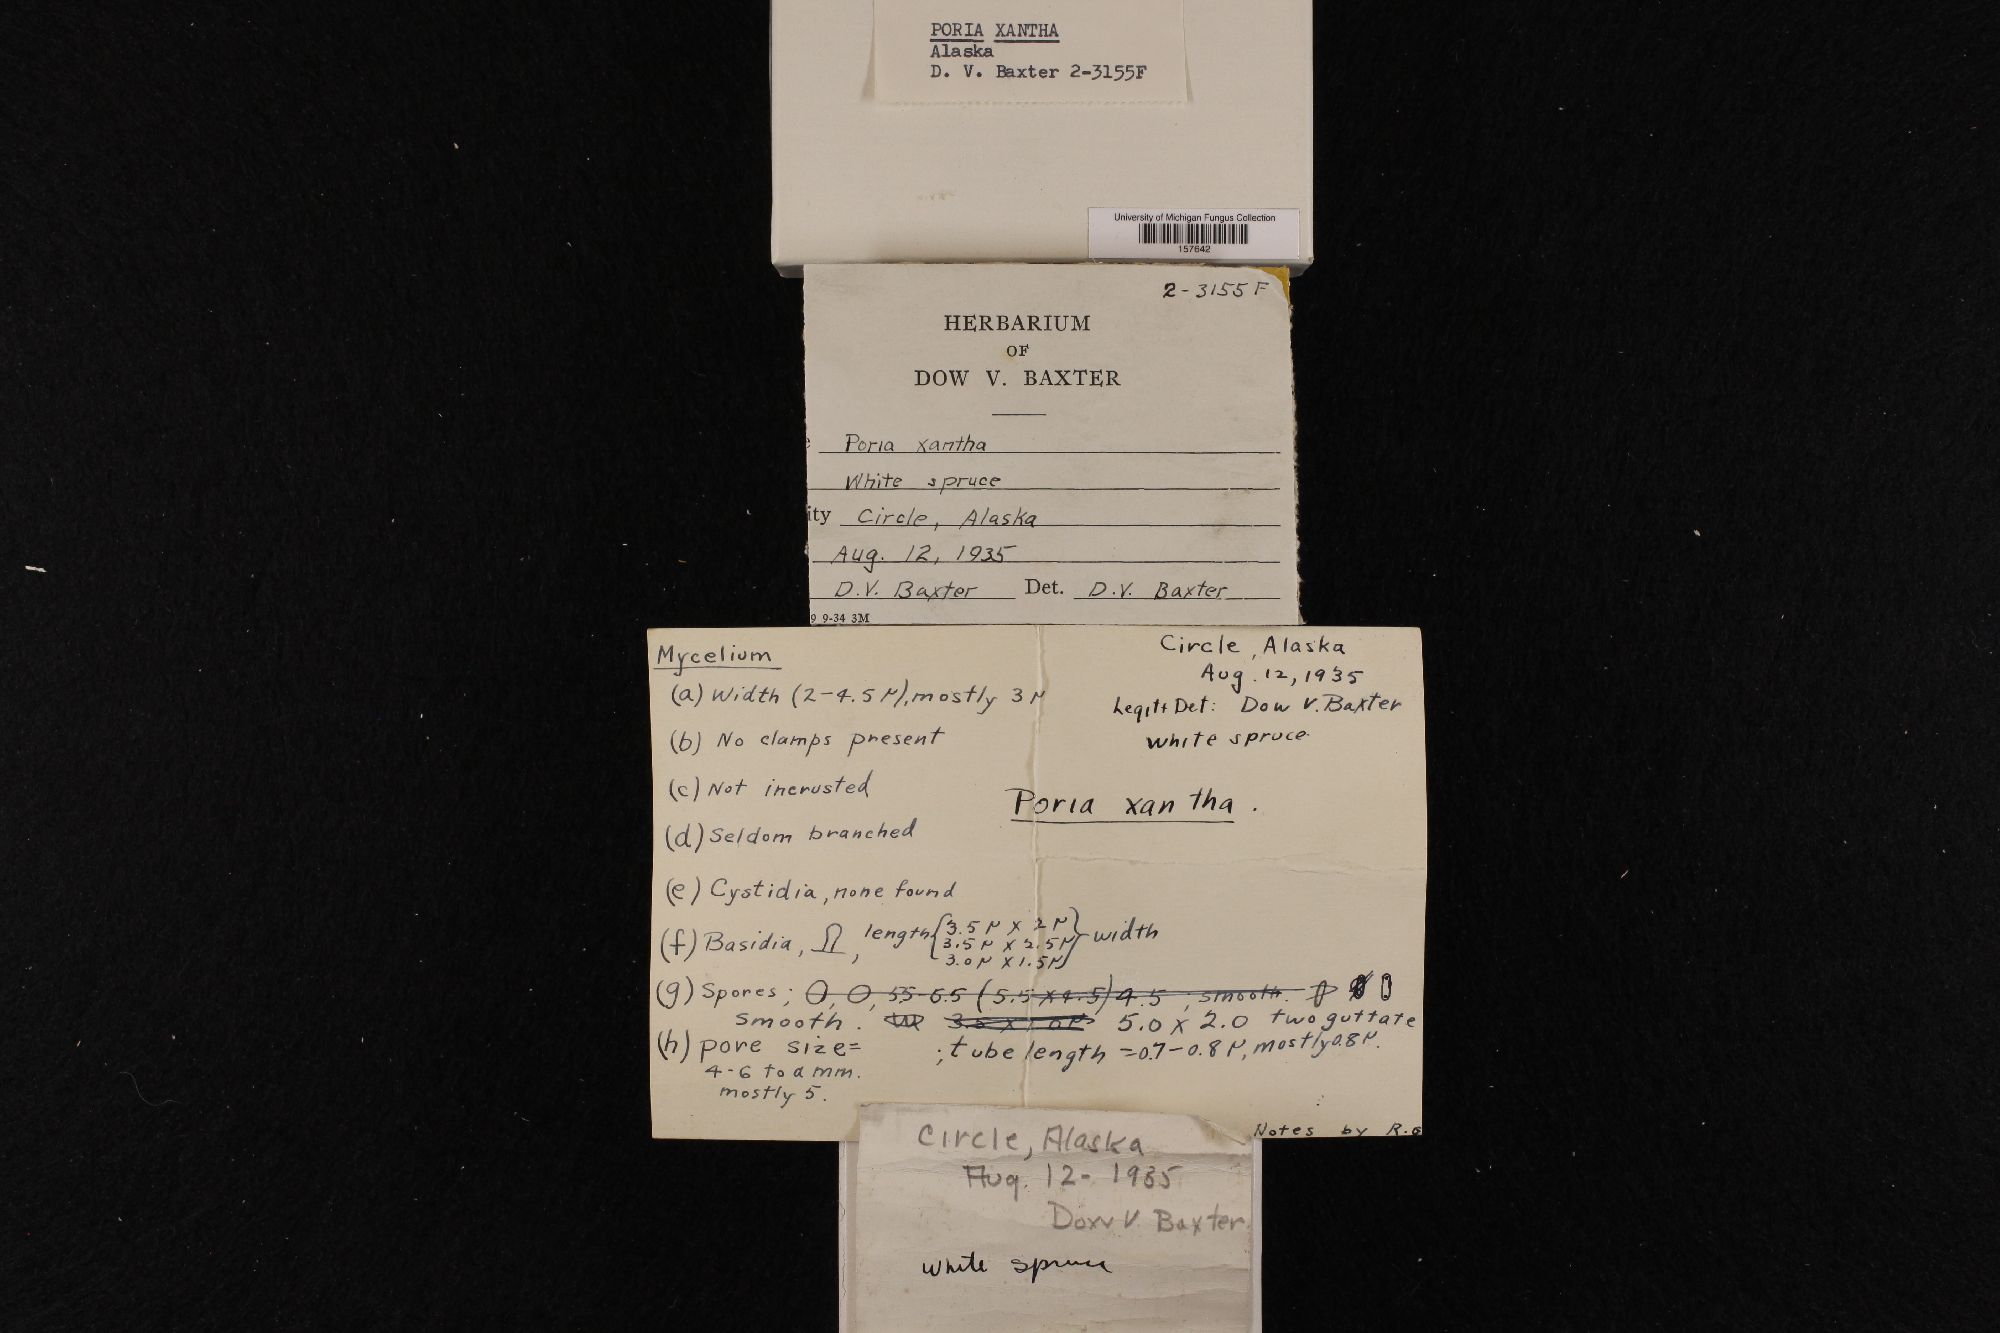 PORIA XANTHA
Alaska
D. V. Baxter 2-3155F
University of Michigan Fungus Collection
157642
2-3155 F
HERBARIUM
OF
DOW V. BAXTER
e Poria xantha
White spruce
ity Circle, Alaska
Aug. 12, 1935
D.V. Baxter Det. D.V. Baxter
9 9-34 3M
Circle, Alaska
Aug. 12, 1935
Leg. et Det: Dow V. Baxter
white spruce
Poria xantha.
Mycelium
(a) Width (2-4.5 μ), mostly 3 μ
(b) No clamps present
(c) Not incrusted
(d) Seldom branched
(e) Cystidia, none found
(f) Basidia, length { 3.5 μ x 2 μ } width
3.5 μ x 2.5 μ
3.0 μ x 1.5 μ
(g) Spores; 5.5-6.5 (5.5 x 4.5) 4.5, smooth.
smooth. 5.0 x 2.0 two guttate
(h) pore size= ; tube length = 0.7-0.8 μ, mostly 0.8 μ.
4-6 to a mm.
mostly 5.
Notes by R.
Circle, Alaska
Aug. 12- 1935
Dow V. Baxter.
white spruce